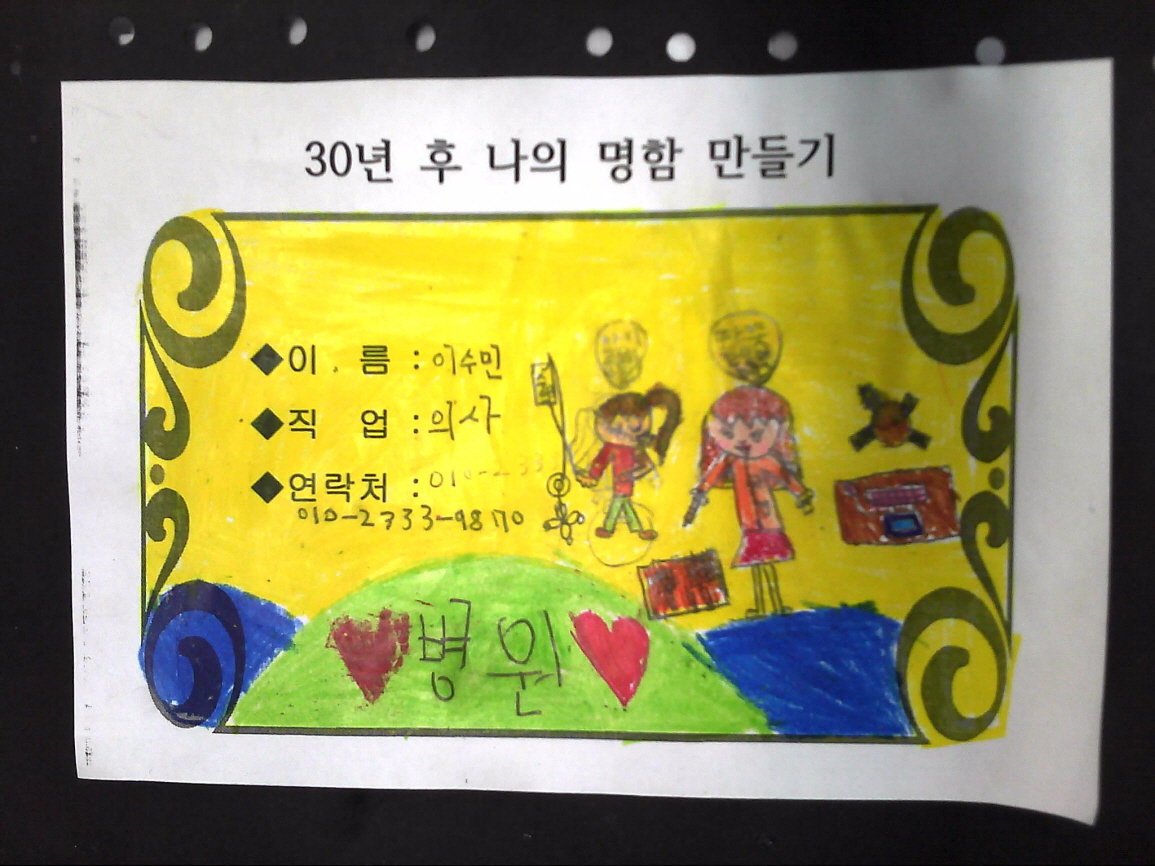 30년 후 나의 명함 만들기
◆이 름 : 이수민
◆직 업 : 의사
◆연락처 : 010-233
010-2733-9870
병원